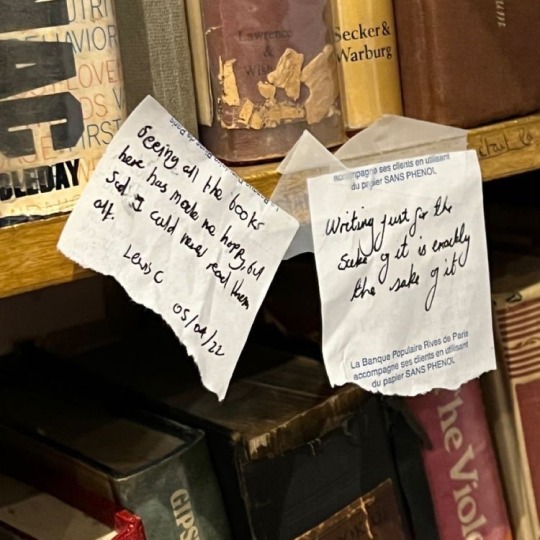 NUTRI
BEHAVIOR
LOVE
FIRST
Lawrence
&
Secker &
Warburg
Seeing all the books
here has made me happy, but
Sad I could never read them
all.
Lewis C
05/04/22
accompagne ses clients en utilisant
du papier SANS PHENOL
Writing just for the
sake of it is exactly
the sake of it
La Banque Populaire Rives de Paris
accompagne ses clients en utilisant
du papier SANS PHENOL
GIPS
The Viol